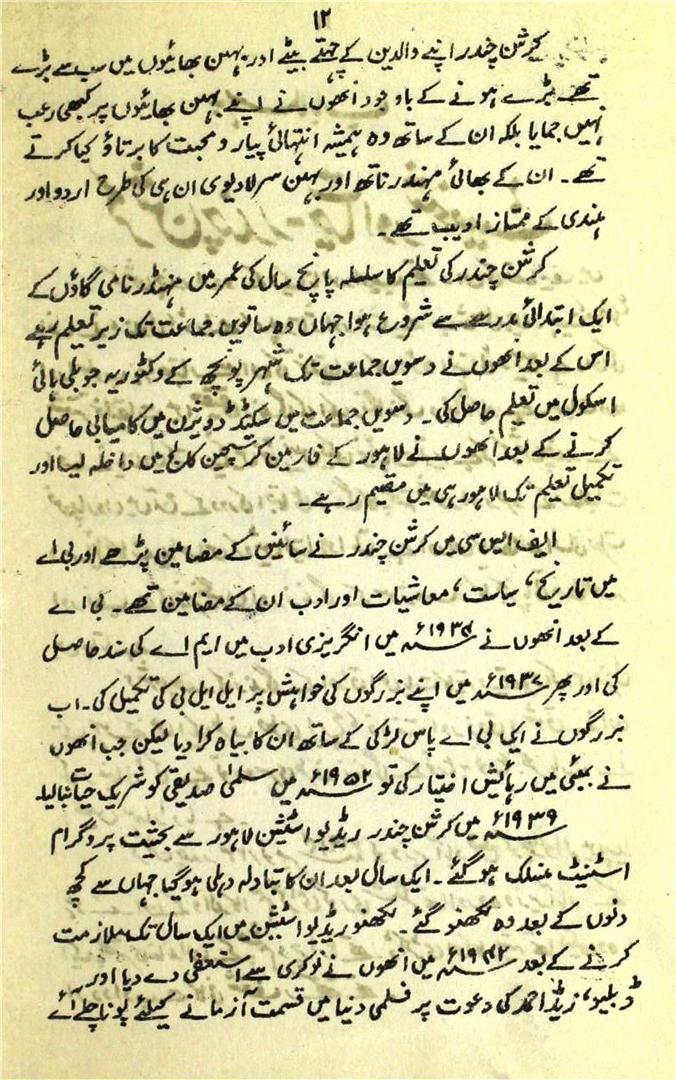 ۱۲
کرشن چندر اپنے والدین کے چہیتے بیٹے اور بہن بھائیوں میں سب سے بڑے
تھے بڑے ہونے کے باوجود انھوں نے اپنے بہن بھائیوں پر کبھی رعب
نہیں جمایا بلکہ ان کے ساتھ وہ ہمیشہ انتہائی پیار و محبت کا برتاؤ کیا کرتے
تھے ۔ ان کے بھائی مہندر ناتھ اور بہن سرلا دیوی ان ہی کی طرح اردو اور
ہندی کے ممتاز ادیب تھے ۔
کرشن چندر کی تعلیم کا سلسلہ پانچ سال کی عمر میں مہنڈر نامی گاؤں کے
ایک ابتدائی مدرسے سے شروع ہوا جہاں وہ ساتویں جماعت تک زیر تعلیم رہے
اس کے بعد انھوں نے دسویں جماعت تک شہر پونچھ کے وکٹوریہ جوبلی ہائی
اسکول میں تعلیم حاصل کی ۔ دسویں جماعت میں سکینڈ ڈویژن میں کامیابی حاصل
کرنے کے بعد انھوں نے لاہور کے فارمین کرسچین کالج میں داخلہ لیا اور
تکمیل تعلیم تک لاہور ہی میں مقیم رہے ۔
ایف ایس سی میں کرشن چندر نے سائنس کے مضامین پڑھے اور بی اے
میں تاریخ ، سیاست ، معاشیات اور ادب ان کے مضامین تھے ۔ بی اے
کے بعد انھوں نے ۱۹۳۴ء میں انگریزی ادب میں ایم اے کی سند حاصل
کی اور پھر ۱۹۳۷ء میں اپنے بزرگوں کی خواہش پر ایل ایل بی کی تکمیل کی ۔ اب
بزرگوں نے ایک بی اے پاس لڑکی کے ساتھ ان کا بیاہ کرا دیا لیکن جب انھوں
نے بمبئی میں رہائش اختیار کی تو ۱۹۵۲ء میں سلمیٰ صدیقی کو شریک حیات بنا لیا۔
۱۹۳۹ء میں کرشن چندر ریڈیو اسٹیشن لاہور سے بحیثیت پروگرام
اسٹنٹ منسلک ہو گئے ۔ ایک سال بعد ان کا تبادلہ دہلی ہو گیا جہاں سے کچھ
دنوں کے بعد وہ لکھنو گئے ۔ لکھنو ریڈیو اسٹیشن میں ایک سال تک ملازمت
کرنے کے بعد ۱۹۴۲ء میں انھوں نے نوکری سے استعفیٰ دے دیا اور
ڈبلیو ، زیڈ احمد کی دعوت پر فلمی دنیا میں قسمت آزمانے کیلئے پونا چلے آئے